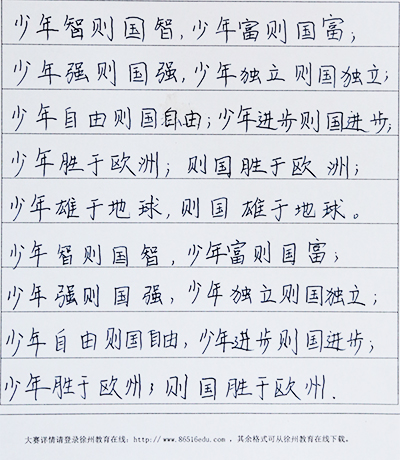 少年智则国智，少年富则国富；
少年强则国强，少年独立则国独立；
少年自由则国自由；少年进步则国进步；
少年胜于欧洲；则国胜于欧洲；
少年雄于地球，则国雄于地球。
少年智则国智，少年富则国富；
少年强则国强，少年独立则国独立；
少年自由则国自由，少年进步则国进步；
少年胜于欧洲；则国胜于欧洲.
大赛详情请登录徐州教育在线：http://www.86516edu.com ，其余格式可从徐州教育在线下载。